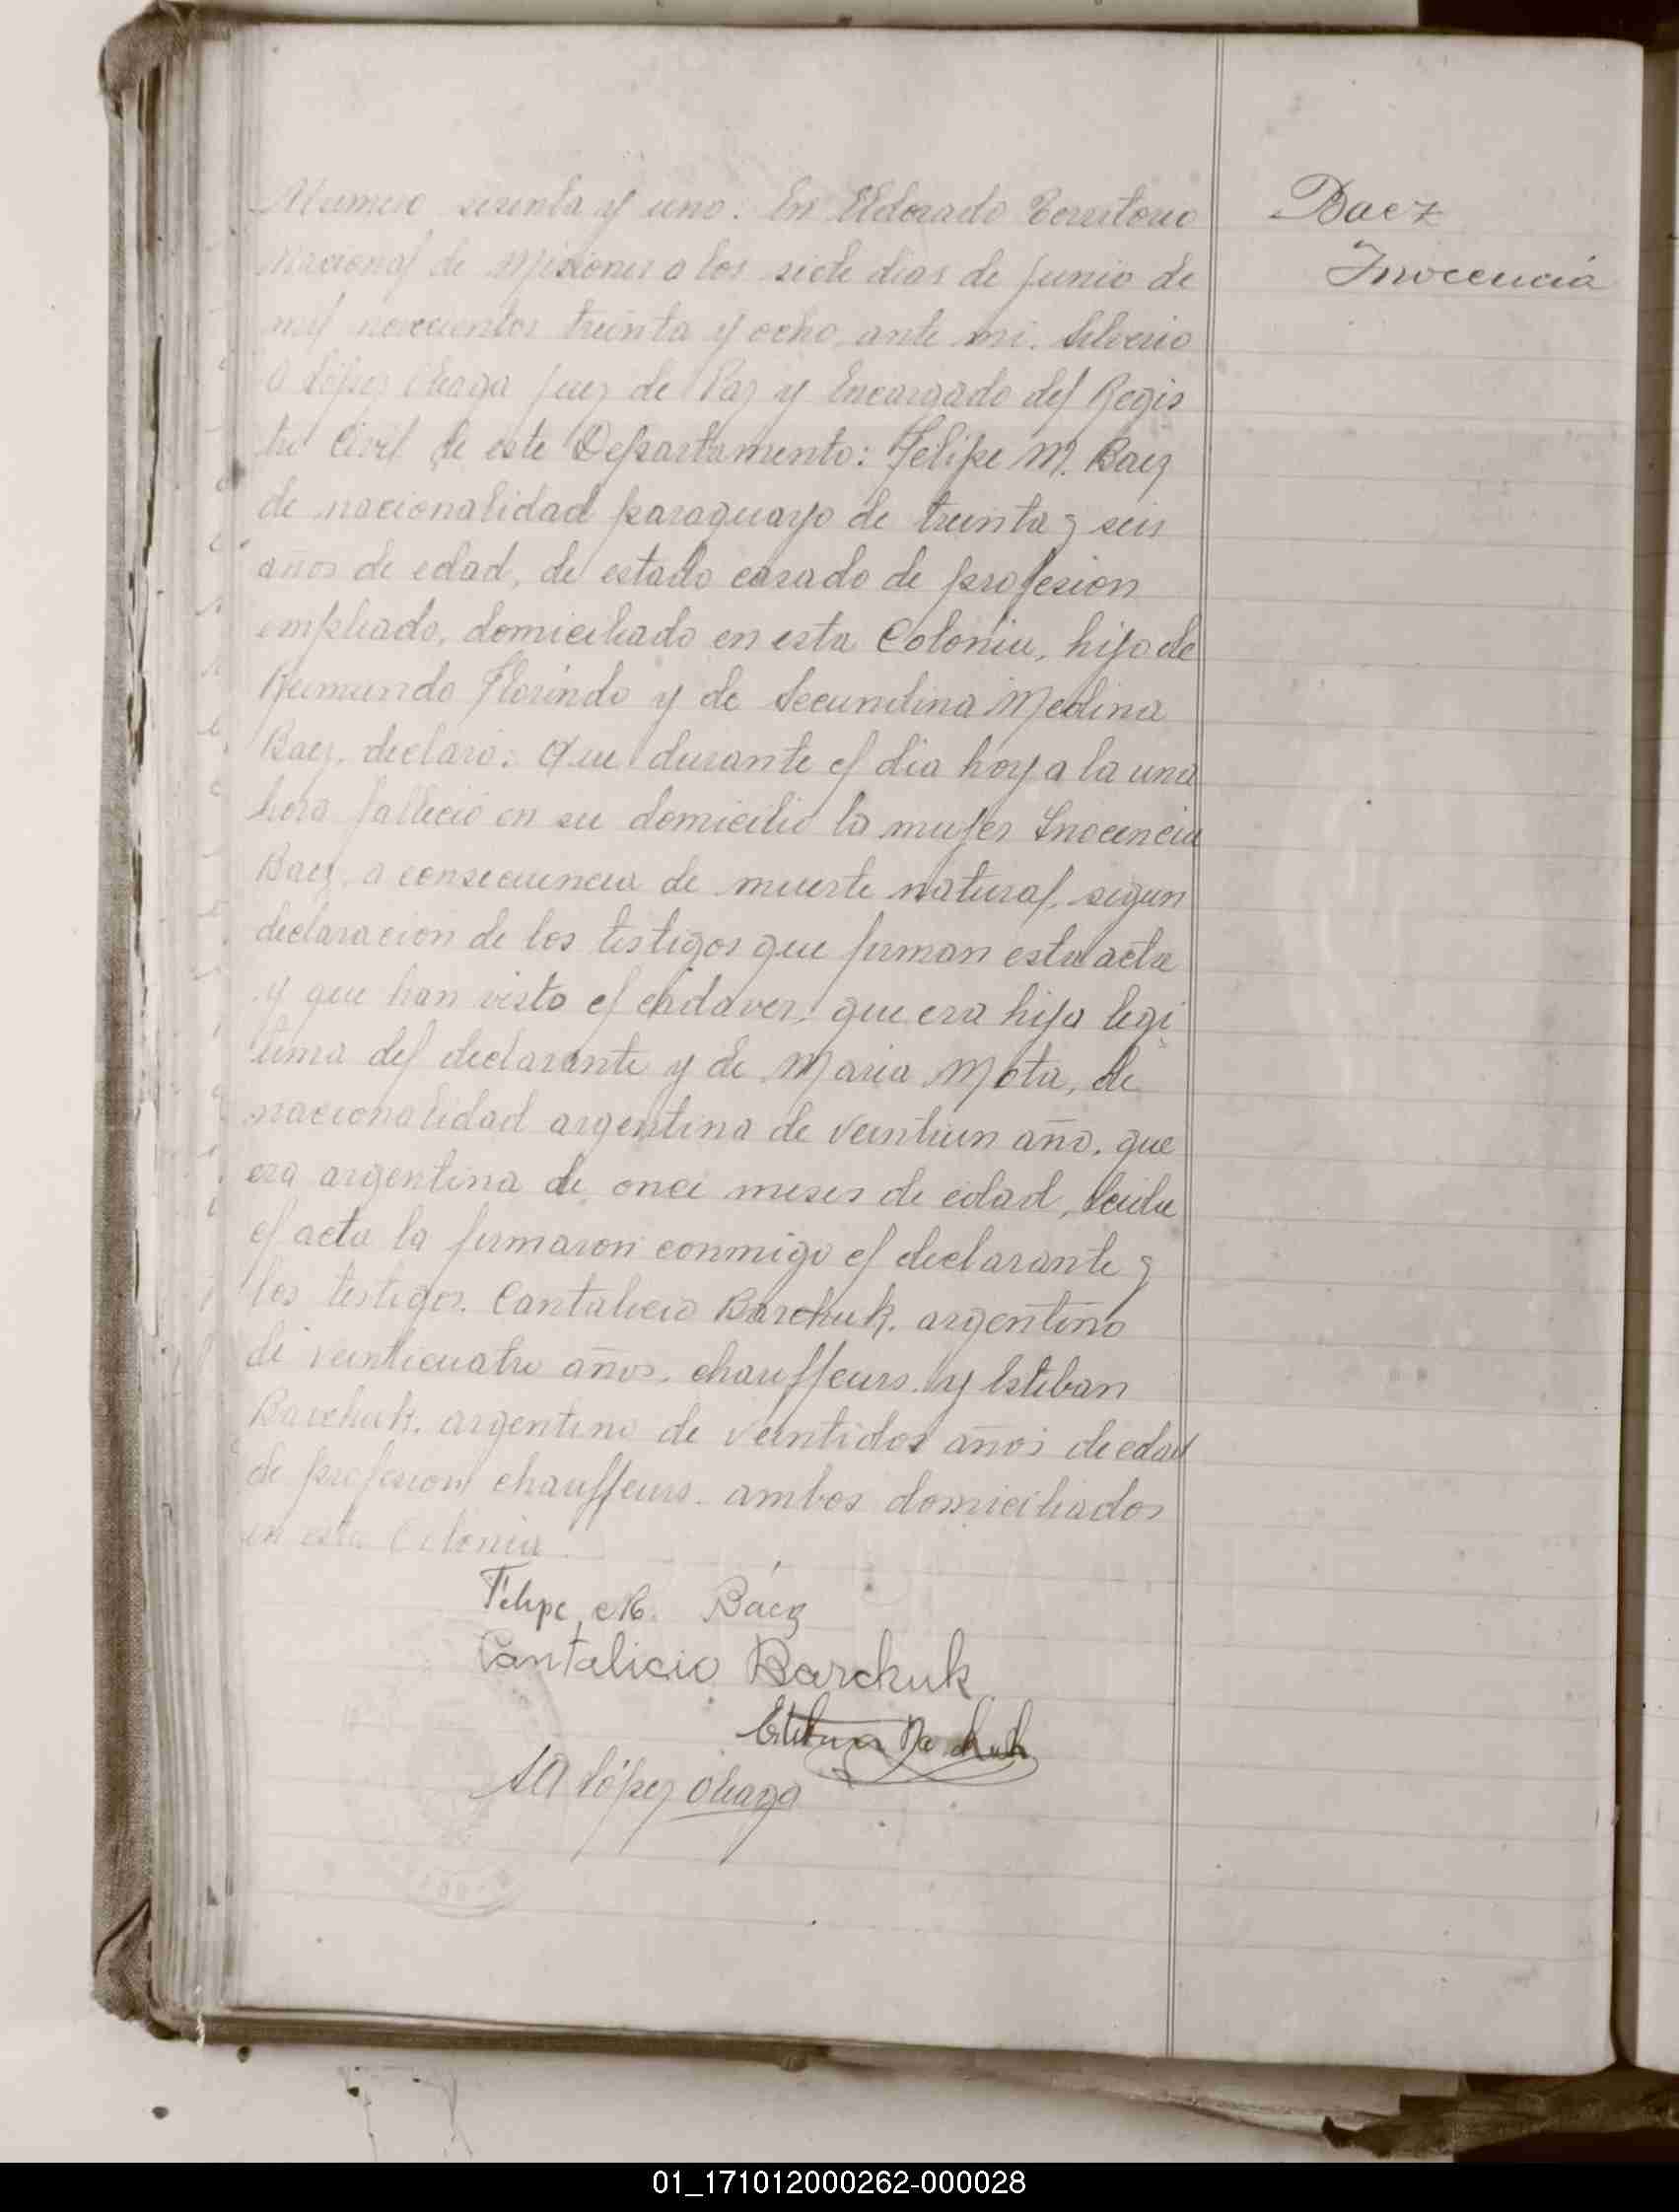 Numero sesenta y uno. En Eldorado Territorio
Nacional de Misiones a los siete dias de Junio de
mil novecientos treinta y ocho, ante mi. Silverio
A López Oleaga Juez de Paz y Encargado del Regis
tro Civil de este Departamento: Felipe M. Baez
de nacionalidad paraguayo de treinta y seis
años de edad, de estado casado de profesion
empleado, domiciliado en esta Colonia, hijo de
Reimundo Florindo y de Secundina Medina
Baez, declaró: Que durante el dia hoy a la una
hora fallecio en su domicilio la mujer Inocencia
Baez, a consecuencia de muerte natural, segun
declaracion de los testigos que firman esta acta
y que han visto el cadaver, que era hija legi
tima del declarante y de Maria Mota, de
nacionalidad argentina de veintiun año, que
era argentina de once meses de edad, Leida
el acta la firmaron conmigo el declarante y
los testigos. Cantalicio Barchuk, argentino
de veinticuatro años, chauffeurs, y Esteban
Barchuk, argentino de veintidos años de edad
de profesion chauffeurs, ambos domiciliados
en esta Colonia
Felipe M. Báez
Cantalicio Barchuk
Esteban Barchuk
SA López Oleaga
Baez
Inocencia
01_171012000262-000028